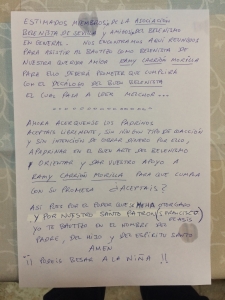 ESTIMADOS MIEMBROS DE LA ASOCIACION
BELENISTA DE SEVILLA Y AMIGOS DEL BELENISMO
EN GENERAL. NOS ENCONTRAMOS AQUÍ REUNIDOS
PARA ASISTIR AL BAUTIZO COMO BELENISTA DE
NUESTRA QUERIDA AMIGA RAMY CARRIÓN MORILLA
PARA ELLO DEBERÁ PROMETER QUE CUMPLIRÁ
CON EL DECÁLOGO DEL BUEN BELENISTA
EL CUAL PASA A LEER MELCHOR
AHORA ACERQUENSE LOS PADRINOS
ACEPTAIS LIBREMENTE, SIN NINGUN TIPO DE COACCIÓN
Y SIN INTENCIÓN DE GANAR DINERO POR ELLO,
APADRINAR EN EL BUEN ARTE DEL BELENISMO
Y ORIENTAR Y DAR VUESTRO APOYO A
RAMY CARRIÓN MORILLA PARA QUE CUMPLA
CON SU PROMESA ¿ACEPTAIS?
ASI PUES POR EL PODER QUE ME HA OTORGADO
Y POR NUESTRO SANTO PATRON (S. FRANCISCO
DE ASIS)
YO TE BAUTIZO EN EL NOMBRE DEL
PADRE, DEL HIJO Y DEL ESPIRITU SANTO
AMEN
¡¡ PODEIS BESAR A LA NIÑA !!